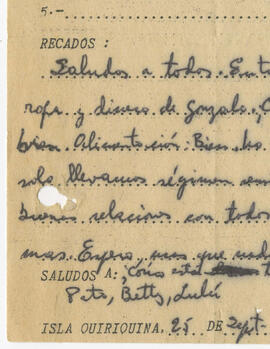 5.-
RECADOS:
Saludos a todos.
ropa y dinero de Gonzalo,
bien. Alimentación: Bien
solo llevamos régimen
buenas relaciones con todos
mas. Espero mas que nada
SALUDOS A: ¿Cómo está
Pets, Betty, Lulú
ISLA QUIRIQUINA, 25 DE Sept-